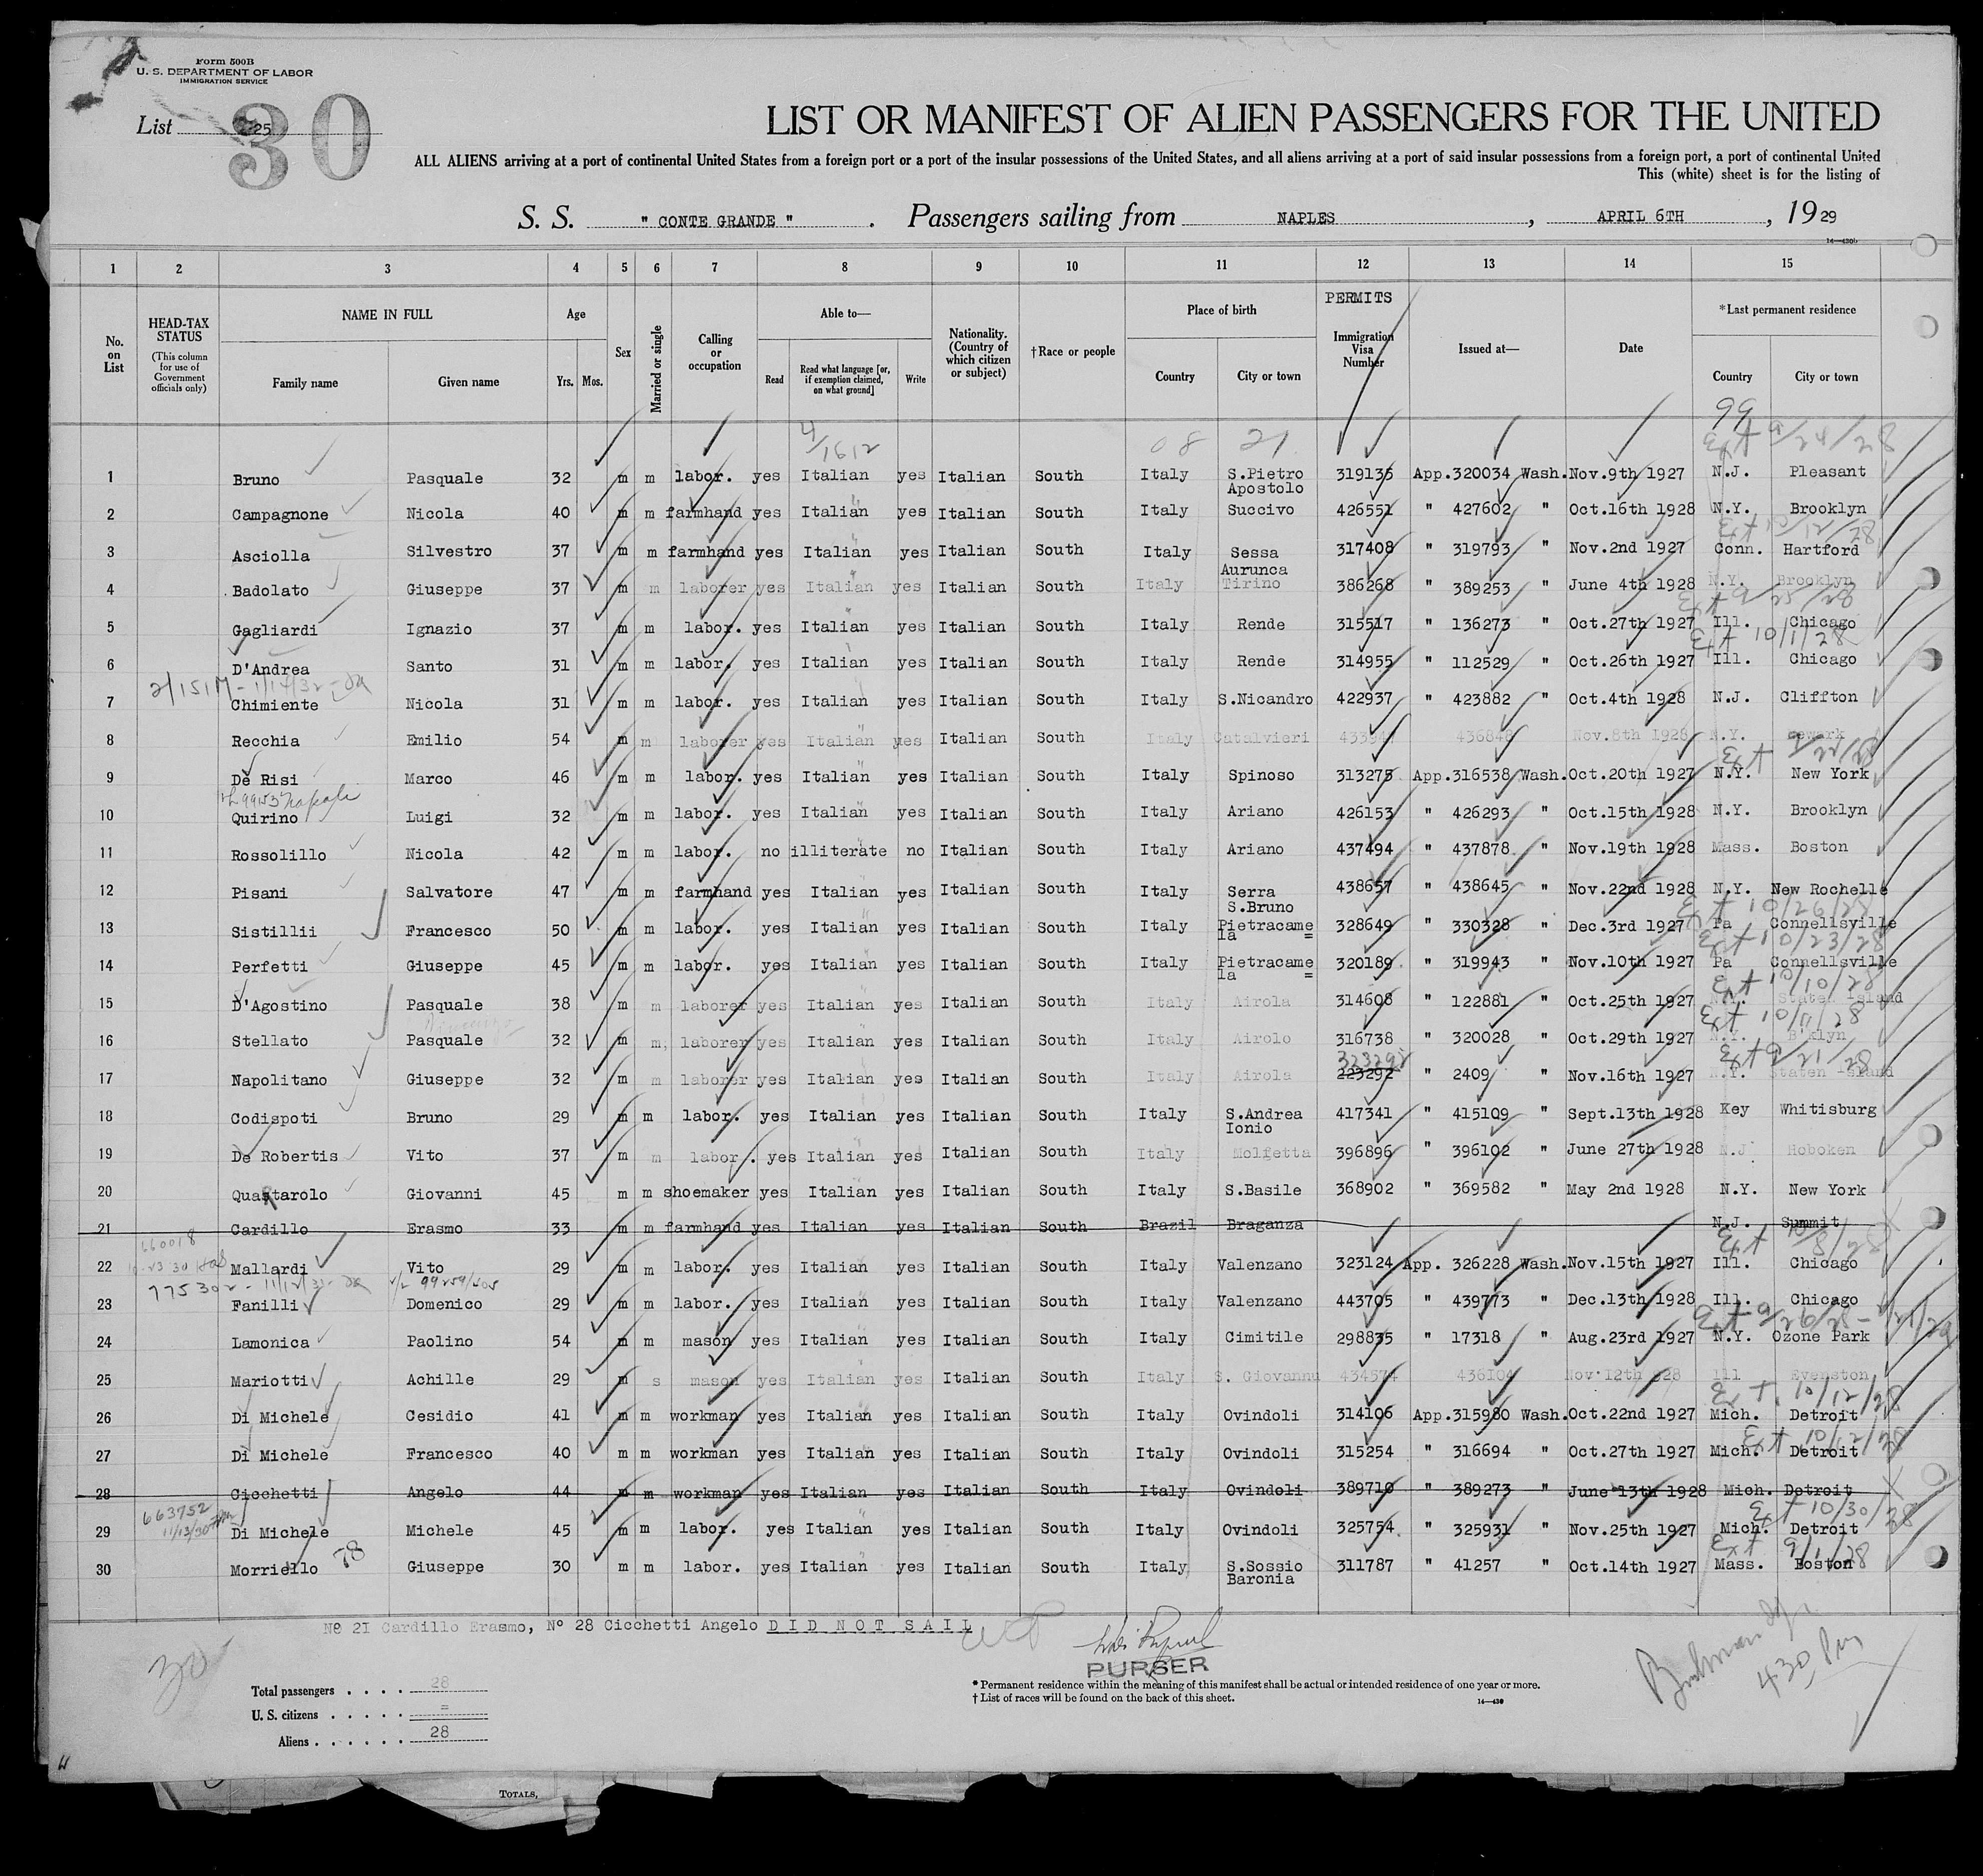 Form 500B
U. S. DEPARTMENT OF LABOR
IMMIGRATION SERVICE
List 25
30
LIST OR MANIFEST OF ALIEN PASSENGERS FOR THE UNITED
ALL ALIENS arriving at a port of continental United States from a foreign port or a port of the insular possessions of the United States, and all aliens arriving at a port of said insular possessions from a foreign port, a port of continental United
This (white) sheet is for the listing of
S. S. " CONTE GRANDE " . Passengers sailing from NAPLES , APRIL 6TH , 1929
1 2 3 4 5 6 7 8 9 10 11 12 13 14 15
No. on List
HEAD-TAX STATUS (This column for use of Government officials only)
NAME IN FULL Family name Given name
Age Yrs. Mos.
Sex
Married or single
Calling or occupation
Able to— Read Read what language [or, if exemption claimed, on what ground] Write
Nationality. (Country of which citizen or subject)
†Race or people
Place of birth Country City or town
PERMITS Immigration Visa Number
Issued at—
Date
*Last permanent residence Country City or town
99
4/1612 08 21 Ext 9/24/28
1 Bruno Pasquale 32 m m labor. yes Italian yes Italian South Italy S.Pietro Apostolo 319135 App.320034 Wash. Nov.9th 1927 N.J. Pleasant
2 Campagnone Nicola 40 m m farmhand yes Italian yes Italian South Italy Succivo 426551 " 427602 " Oct.16th 1928 N.Y. Brooklyn
Ext 10/12/28
3 Asciolla Silvestro 37 m m farmhand yes Italian yes Italian South Italy Sessa Aurunca 317408 " 319793 " Nov.2nd 1927 Conn. Hartford
4 Badolato Giuseppe 37 m m laborer yes Italian yes Italian South Italy Tirino 386268 " 389253 " June 4th 1928 N.Y. Brooklyn
5 Gagliardi Ignazio 37 m m labor. yes Italian yes Italian South Italy Rende 315517 " 136273 " Oct.27th 1927 Ill. Chicago
Ext 10/1/28
6 D'Andrea Santo 31 m m labor. yes Italian yes Italian South Italy Rende 314955 " 112529 " Oct.26th 1927 Ill. Chicago
7 Chimiente Nicola 31 m m labor. yes Italian yes Italian South Italy S.Nicandro 422937 " 423882 " Oct.4th 1928 N.J. Cliffton
8 Recchia Emilio 54 m m laborer yes Italian yes Italian South Italy Catalvieri Nov.8th 1928 N.Y. Newark
9 De Risi Marco 46 m m labor. yes Italian yes Italian South Italy Spinoso 313275 App.316538 Wash. Oct.20th 1927 N.Y. New York
10 Quirino Luigi 32 m m labor. yes Italian yes Italian South Italy Ariano 426153 " 426293 " Oct.15th 1928 N.Y. Brooklyn
11 Rossolillo Nicola 42 m m labor. no illiterate no Italian South Italy Ariano 437494 " 437878 " Nov.19th 1928 Mass. Boston
12 Pisani Salvatore 47 m m farmhand yes Italian yes Italian South Italy Serra S.Bruno 438657 " 438645 " Nov.22nd 1928 N.Y. New Rochelle
Ext 10/26/28
13 Sistillii Francesco 50 m m labor. yes Italian yes Italian South Italy Pietracame= la 328649 " 330328 " Dec.3rd 1927 Pa Connellsville
Ext 10/23/28
14 Perfetti Giuseppe 45 m m labor. yes Italian yes Italian South Italy Pietracame= la 320189 " 319943 " Nov.10th 1927 Pa Connellsville
Ext 10/10/28
15 D'Agostino Pasquale 38 m m laborer yes Italian yes Italian South Italy Airola 314608 " 122881 " Oct.25th 1927 N.Y. Staten Island
Ext 10/11/28
16 Stellato Pasquale 32 m m, laborer yes Italian yes Italian South Italy Airolo 316738 " 320028 " Oct.29th 1927 N.Y. B'klyn
323292 Ext 9/21/28
17 Napolitano Giuseppe 32 m m laborer yes Italian yes Italian South Italy Airola 223292 " 2409 " Nov.16th 1927 N.Y. Staten Island
18 Codispoti Bruno 29 m m labor. yes Italian yes Italian South Italy S.Andrea Ionio 417341 " 415109 " Sept.13th 1928 Key Whitisburg
19 De Robertis Vito 37 m m labor. yes Italian yes Italian South Italy Molfetta 396896 " 396102 " June 27th 1928 N.J Hoboken
20 Quastarolo Giovanni 45 m m shoemaker yes Italian yes Italian South Italy S.Basile 368902 " 369582 " May 2nd 1928 N.Y. New York
21 Cardillo Erasmo 33 m m farmhand yes Italian yes Italian South Brazil Braganza N.J. Summit
660018 Ext 10/8/28
22 Mallardi Vito 29 m m labor. yes Italian yes Italian South Italy Valenzano 323124 App. 326228 Wash. Nov.15th 1927 Ill. Chicago
775302 - 11/12/31
23 Fanilli Domenico 29 m m labor. yes Italian yes Italian South Italy Valenzano 443705 " 439773 " Dec.13th 1928 Ill. Chicago
24 Lamonica Paolino 54 m m mason yes Italian yes Italian South Italy Cimitile 298835 " 17318 " Aug.23rd 1927 N.Y. Ozone Park
25 Mariotti Achille 29 m s mason yes Italian yes Italian South Italy S. Giovannu 436104 Nov.12th 928 Ill Evenston
Ext. 10/12/28
26 Di Michele Cesidio 41 m m workman yes Italian yes Italian South Italy Ovindoli 314106 App.315980 Wash. Oct.22nd 1927 Mich. Detroit
Ext 10/12/28
27 Di Michele Francesco 40 m m workman yes Italian yes Italian South Italy Ovindoli 315254 " 316694 " Oct.27th 1927 Mich. Detroit
28 Cicchetti Angelo 44 m m workman yes Italian yes Italian South Italy Ovindoli 389710 " 389273 " June 13th 1928 Mich. Detroit
663752 Ext 10/30/28
29 Di Michele Michele 45 m m labor. yes Italian yes Italian South Italy Ovindoli 325754 " 325931 " Nov.25th 1927 Mich. Detroit
Ext 9/1/28
30 Morriello 78 Giuseppe 30 m m labor. yes Italian yes Italian South Italy S.Sossio Baronia 311787 " 41257 " Oct.14th 1927 Mass. Boston
No 21 Cardillo Erasmo, No 28 Cicchetti Angelo DID NOT SAIL
30
PURSER
Total passengers . . . . 28
U. S. citizens . . . . . =
Aliens . . . . . . 28
* Permanent residence within the meaning of this manifest shall be actual or intended residence of one year or more.
† List of races will be found on the back of this sheet.
14—430
430 Pm
TOTALS,